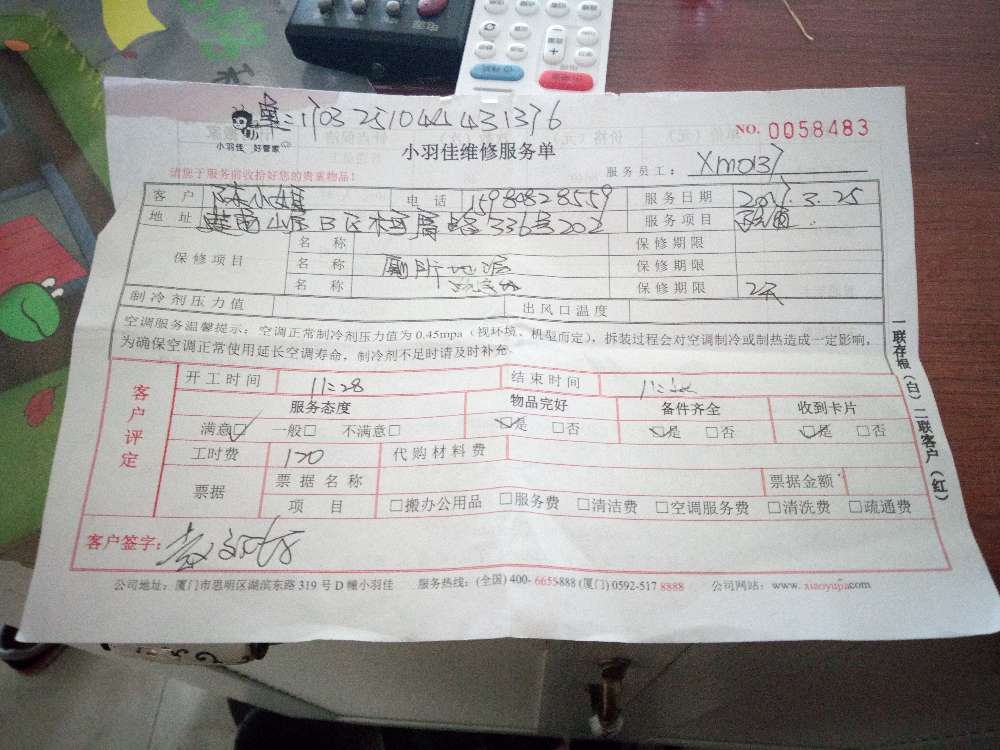 单:17032510444313 76
小羽佳 好管家
小羽佳维修服务单
NO. 0058483
请您于服务前收拾好您的贵重物品!
服务员工: XM0137
客户 陈小姐 电话 15980828559 服务日期 2017.3.25
地址 山后 336号202 服务项目
保修项目 名称 保修期限
名称 厕所地漏 保修期限
名称 保修期限 2天
制冷剂压力值 出风口温度
空调服务温馨提示:空调正常制冷剂压力值为0.45mpa(视环境、机型而定),拆装过程会对空调制冷或制热造成一定影响,
为确保空调正常使用延长空调寿命,制冷剂不足时请及时补充。
客户评定
开工时间 11:28 结束时间
服务态度 物品完好 备件齐全 收到卡片
满意□ 一般□ 不满意□ □是 □否 □是 □否 □是 □否
工时费 120 代购材料费
票据 票据名称 票据金额
项目 □搬办公用品 □服务费 □清洁费 □空调服务费 □清洗费 □疏通费
客户签字:
公司地址:厦门市思明区湖滨东路319号D幢小羽佳 服务热线:(全国)400-6655888(厦门)0592-5178888 公司网站:www.xiaoyujia.com
一联存根(白)二联客户(红)